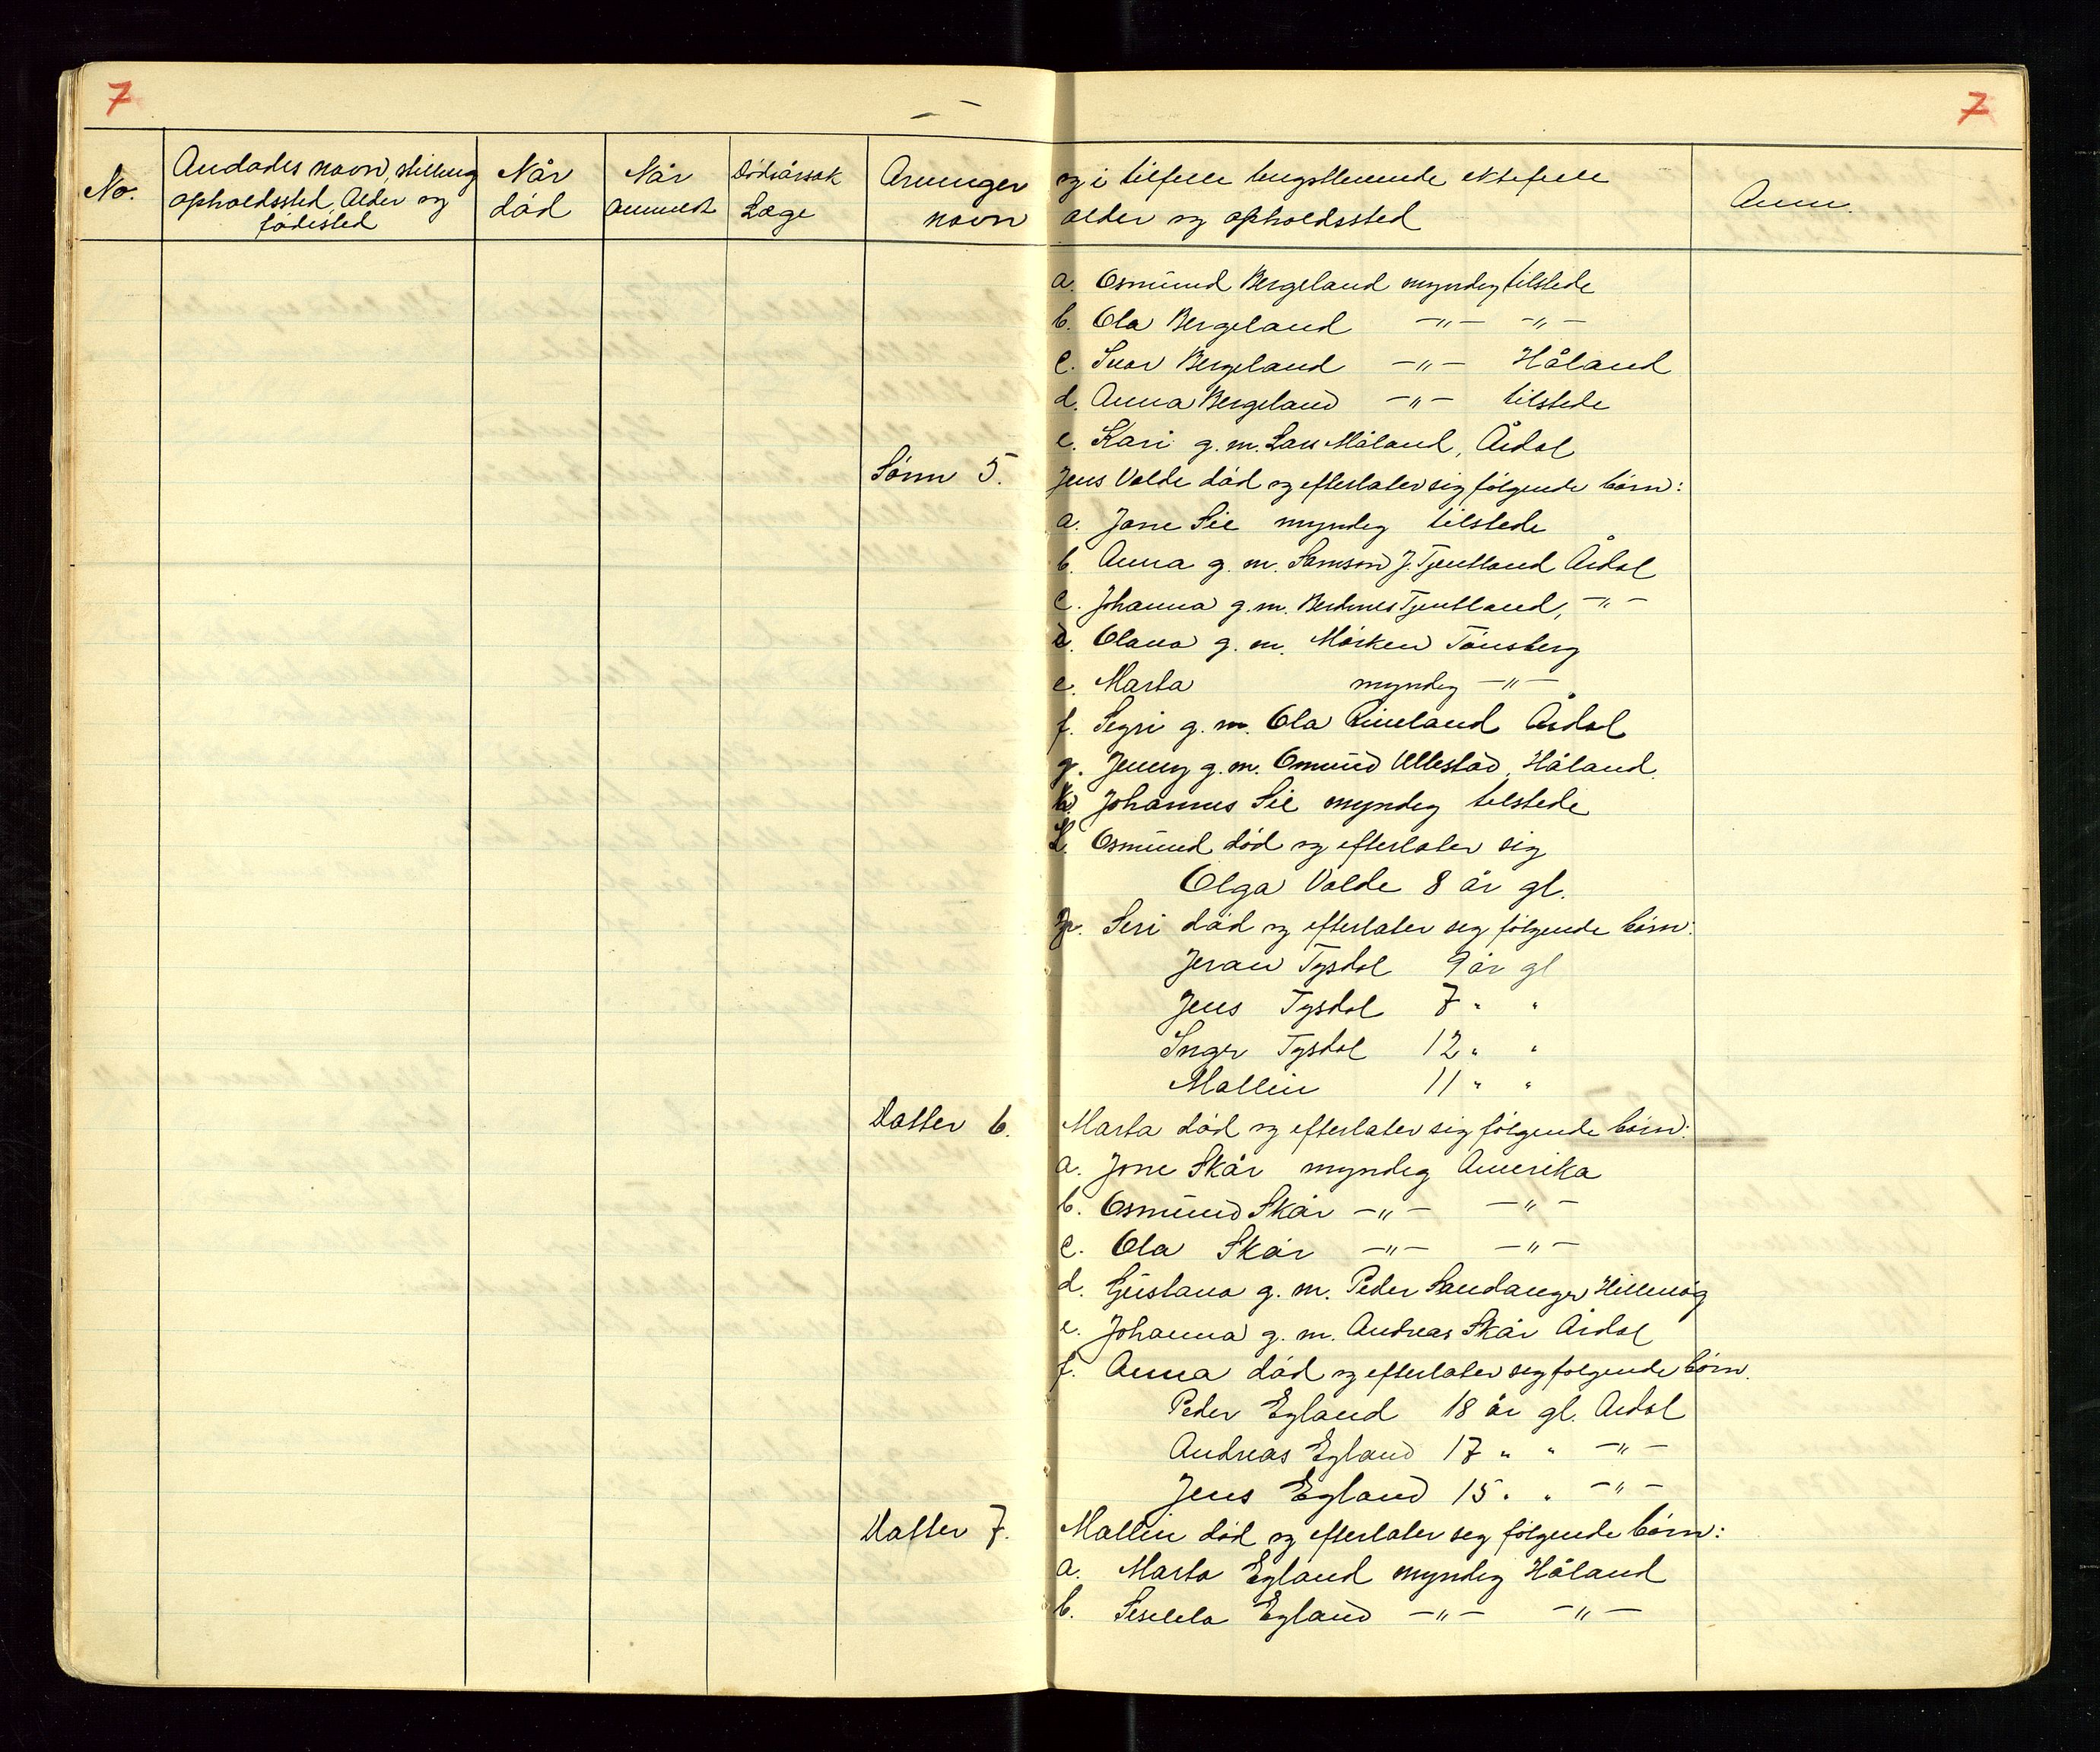 7
7
No.
Avdødes navn, stilling
opholdssted, Alder og
fødested
Når
død
Når
anmeldt
Dødsårsak
Læge
Arvinger
navn
og i tilfelle lengstlevende ektefelle
alder og opholdssted
Anm.
a. Osmund Bergeland myndig tilstede
b. Ola Bergeland —"— —"—
c. Ivar Bergeland —"— Håland
d. Anna Bergeland —"— tilstede
e. Kari g. m. Lars Måland, Årdal
Sønn 5. Jens Valde død og efterlater sig følgende børn:
a. Jone Sie myndig tilstede
b. Anna g. m. Samson J. Tjentland Årdal
c. Johanna g. m. Tjentland, —"—
d. Olava g. m. Mørken Tønsberg
e. Marta myndig —"—
f. Segri g. m. Ola Årdal
g. Jenny g. m. Omund Ullestad, Håland.
Johannes Sie myndig tilstede
Osmund død og efterlater sig
Olga Valde 8 år gl.
Seri død og efterlater sig følgende børn:
Tysdal 9 år gl
Jens Tysdal 7 " "
Inger Tysdal 12 " "
Mallin 11 " "
Datter 6. Marta død og efterlater sig følgende børn:
a. Jone Skår myndig Amerika
b. Osmund Skår —"— —"—
c. Ola Skår —"— —"—
d. Gustava g. m. Peder Sandanger Hillevåg
e. Johanna g. m. Andreas Skår Årdal
f. Anna død og efterlater sig følgende børn.
Peder Egland 18 år gl. Årdal
Andreas Egland 17 " " —"—
Jens Egland 15 " " —"—
Datter 7. Mallin død og efterlater sig følgende børn:
a. Marta Egland myndig Håland
b. Egland —"— —"—